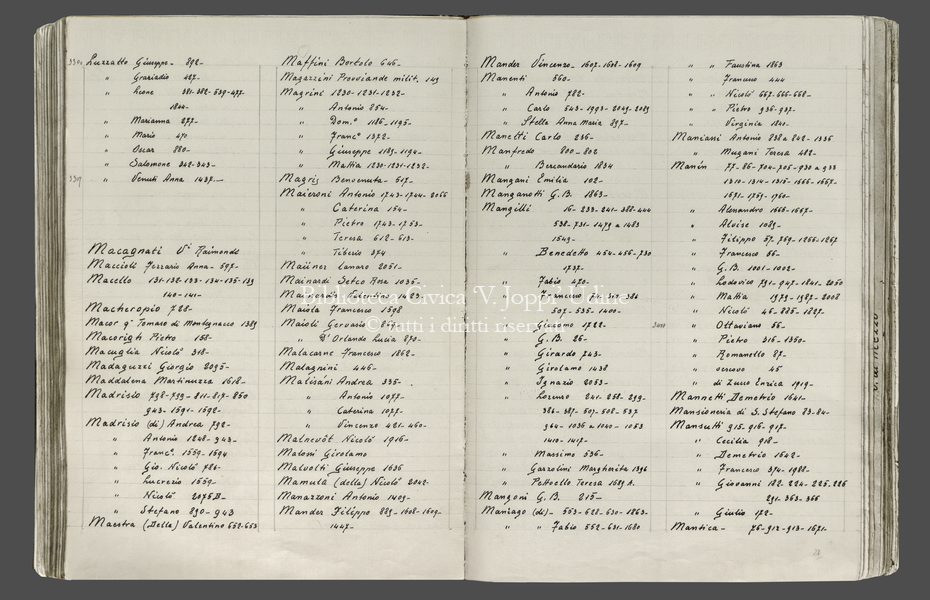 Luzzatto Giuseppe - 892-
" Graziadio 427-
" Leone 381-382-539-477-
1844-
" Marianna 277-
" Mario 470
" Oscar 880-
" Salomone 342-343-
3309 " Venuti Anna 1437-
Macagnati Raimondo
Maccioli Ferrario Anna - 597-
Macello 131-132-133-134-135-139
140-141-
Macheropio 728-
Macor q.m Tomaso di Montegnacco 1389
Macorigh Pietro 158-
Macuglia Nicolò 318-
Madaguzzi Giorgio 2095-
Maddalena Martinuzza 1618-
Madrisio 798-799-811-817-850
943-1591-1592-
Madrisio (di) Andrea 792-
" Antonio 1248-943-
" Franc.o 1559-1594
" Gio. Nicolò 726-
" Lucrezio 1559-
" Nicolò 2075B-
" Stefano 890-943
Maestra (Della) Valentino 652-653
Maffini Bortolo 646-
Magazzini Provviande milit. 149
Magrini 1230-1231-1232-
" Antonio 254-
" Dom.o 1186-1195-
" Franc.o 1372-
" Giuseppe 1189-1194-
" Mattia 1230-1231-1232-
Magris Benvenuta - 517-
Maieroni Antonio 1743-1744-2066
" Caterina 154-
" Pietro 1743-1753-
" Teresa 612-613-
" Tiberio 374
Maiiner 2051-
Mainardi 1035-
Maiola Francesco 1598
Maioli Gervasio
" D'Orlando Lucia 870-
Malacarne Francesco 1862-
Malagnini 446-
Malisani Andrea 335-
" Antonio 1077-
" Caterina 1077-
" Vincenzo 421-460-
Malnevôt Nicolò 1916-
Malossi Girolamo
Malvolti Giuseppe 1636
Mamula (della) Nicolò 2042-
Manazzoni Antonio 1403-
Mander Filippo 889-1608-1609-
1447-
Mander Vincenzo 1607-1608-1609
Manenti 560-
" Antonio 722-
" Carlo 543-1993-2049-2089
" Stella Anna Maria 897-
Manetti Carlo 236-
Manfredo 800-802
" Bercandario 1834
Mangani Emilia 102-
Manganotti G.B. 1863-
Mangilli 16-233-241-388-444
538-731-1479 a 1483
1549-
" Benedetto 454-456-730
1737-
" Fabio 470-
" Francesco
507-535-1400-
" Giacomo 1722-
" G.B. 26-
" Girardo 743-
" Girolamo 1438
" Ignazio 2053-
" Lorenzo 241-258-299-
386-387-507-508-537
964-1036 a 1040-1053
1410-1417-
" Massimo 536-
" Gazzolini Margherita 1396
" Pettoello Teresa 1689 A.
Mangoni G.B. 215-
Maniago (di) - 553-628-630-1863-
" " Fabio 552-631-1680
" " Faustina 1863
" " Francesco 444
" " Nicolò 667-666-668-
" " Pietro 936-937-
" " Virginia 1841-
Maniassi Antonio 838 a 842-1336
" Mugani Teresa 482-
Manin 77-86-704-705-930 a 933
1310-1314-1315-1666-1667-
1671-1759-1760-
" Alessandro 1666-1667-
" Alvise 1089-
" Filippo 57-769-1266-1267
" Francesco 56-
" G.B. 1001-1002-
" Lodovico 791-947-1841-2050
" Mattia 1979-1987-2008
" Nicolò 45-885-1827-
" Ottaviano 56-
" Pietro 316-1350-
" Romanello 87-
" vescovo 45
" di Zucco Enrica 1919-
Mannetti Demetrio 1641-
Mansioneria di S. Stefano 83-84-
Mansutti 915-916-917-
" Cecilia 918-
" Demetrio 1642-
" Francesco 374-1982-
" Giovanni 182-224-225-226
291-363-366
" Giulio 172-
Mantica - 76-912-913-1671-
Biblioteca Civica 'V. Joppi' Udine
© tutti i diritti riservati